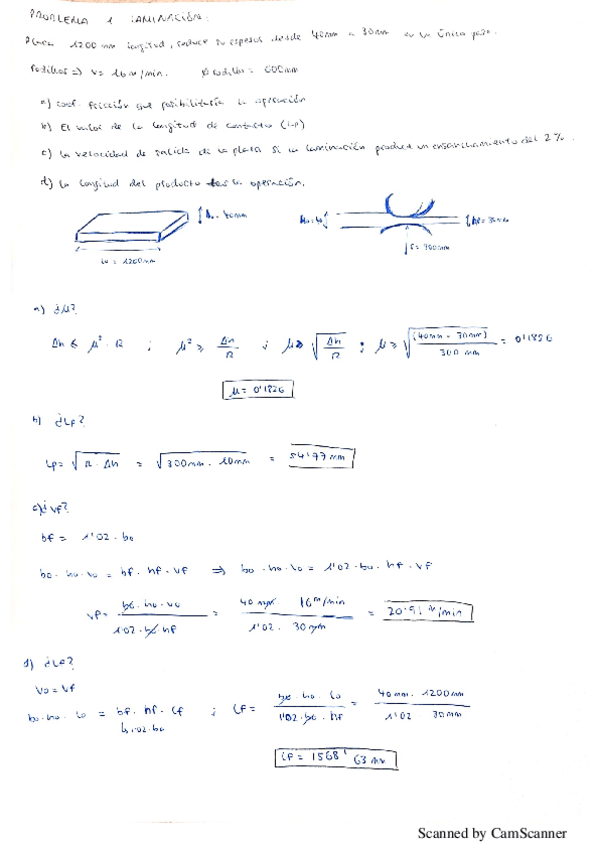 PROBLEMA 1 LAMINACIÓN:
Placa 1200 mm longitud, reduce su espesor desde 40mm a 30mm en un único paso.
Rodillos => V= 16 m/min. Ø rodillo = 600mm
a) coef. fricción que posibilitaría la operación
b) El valor de la longitud de contacto (Lp)
c) La velocidad de salida de la placa si la laminación produce un ensanchamiento del 2%.
d) La longitud del producto tras la operación.
ho = 40mm
lo = 1200mm
r = 300mm
a) ¿μ?
Δh ≤ μ² · R ; μ² ≥ Δh / R ; μ ≥ √(Δh / R) ; μ ≥ √((40mm - 30mm) / 300 mm) = 0'1826
μ = 0'1826
b) ¿Lp?
Lp = √(R · Δh) = √(300mm · 10mm) = 54'77mm
c) ¿Vf?
bf = 1'02 · bo
bo · ho · vo = bf · hf · vf => bo · ho · vo = 1'02 · bo · hf · vf
vf = bo · ho · vo / 1'02 · bo · hf = 40 mm · 16 m/min / 1'02 · 30 mm = 20'91 m/min
d) ¿Lf?
Vo = Vf
bo · ho · Lo = bf · hf · Lf ; Lf = bo · ho · Lo / 1'02 · bo · hf = 40mm · 1200mm / 1'02 30mm
1'02 · bo
Lf = 1568'63 mm
Scanned by CamScanner